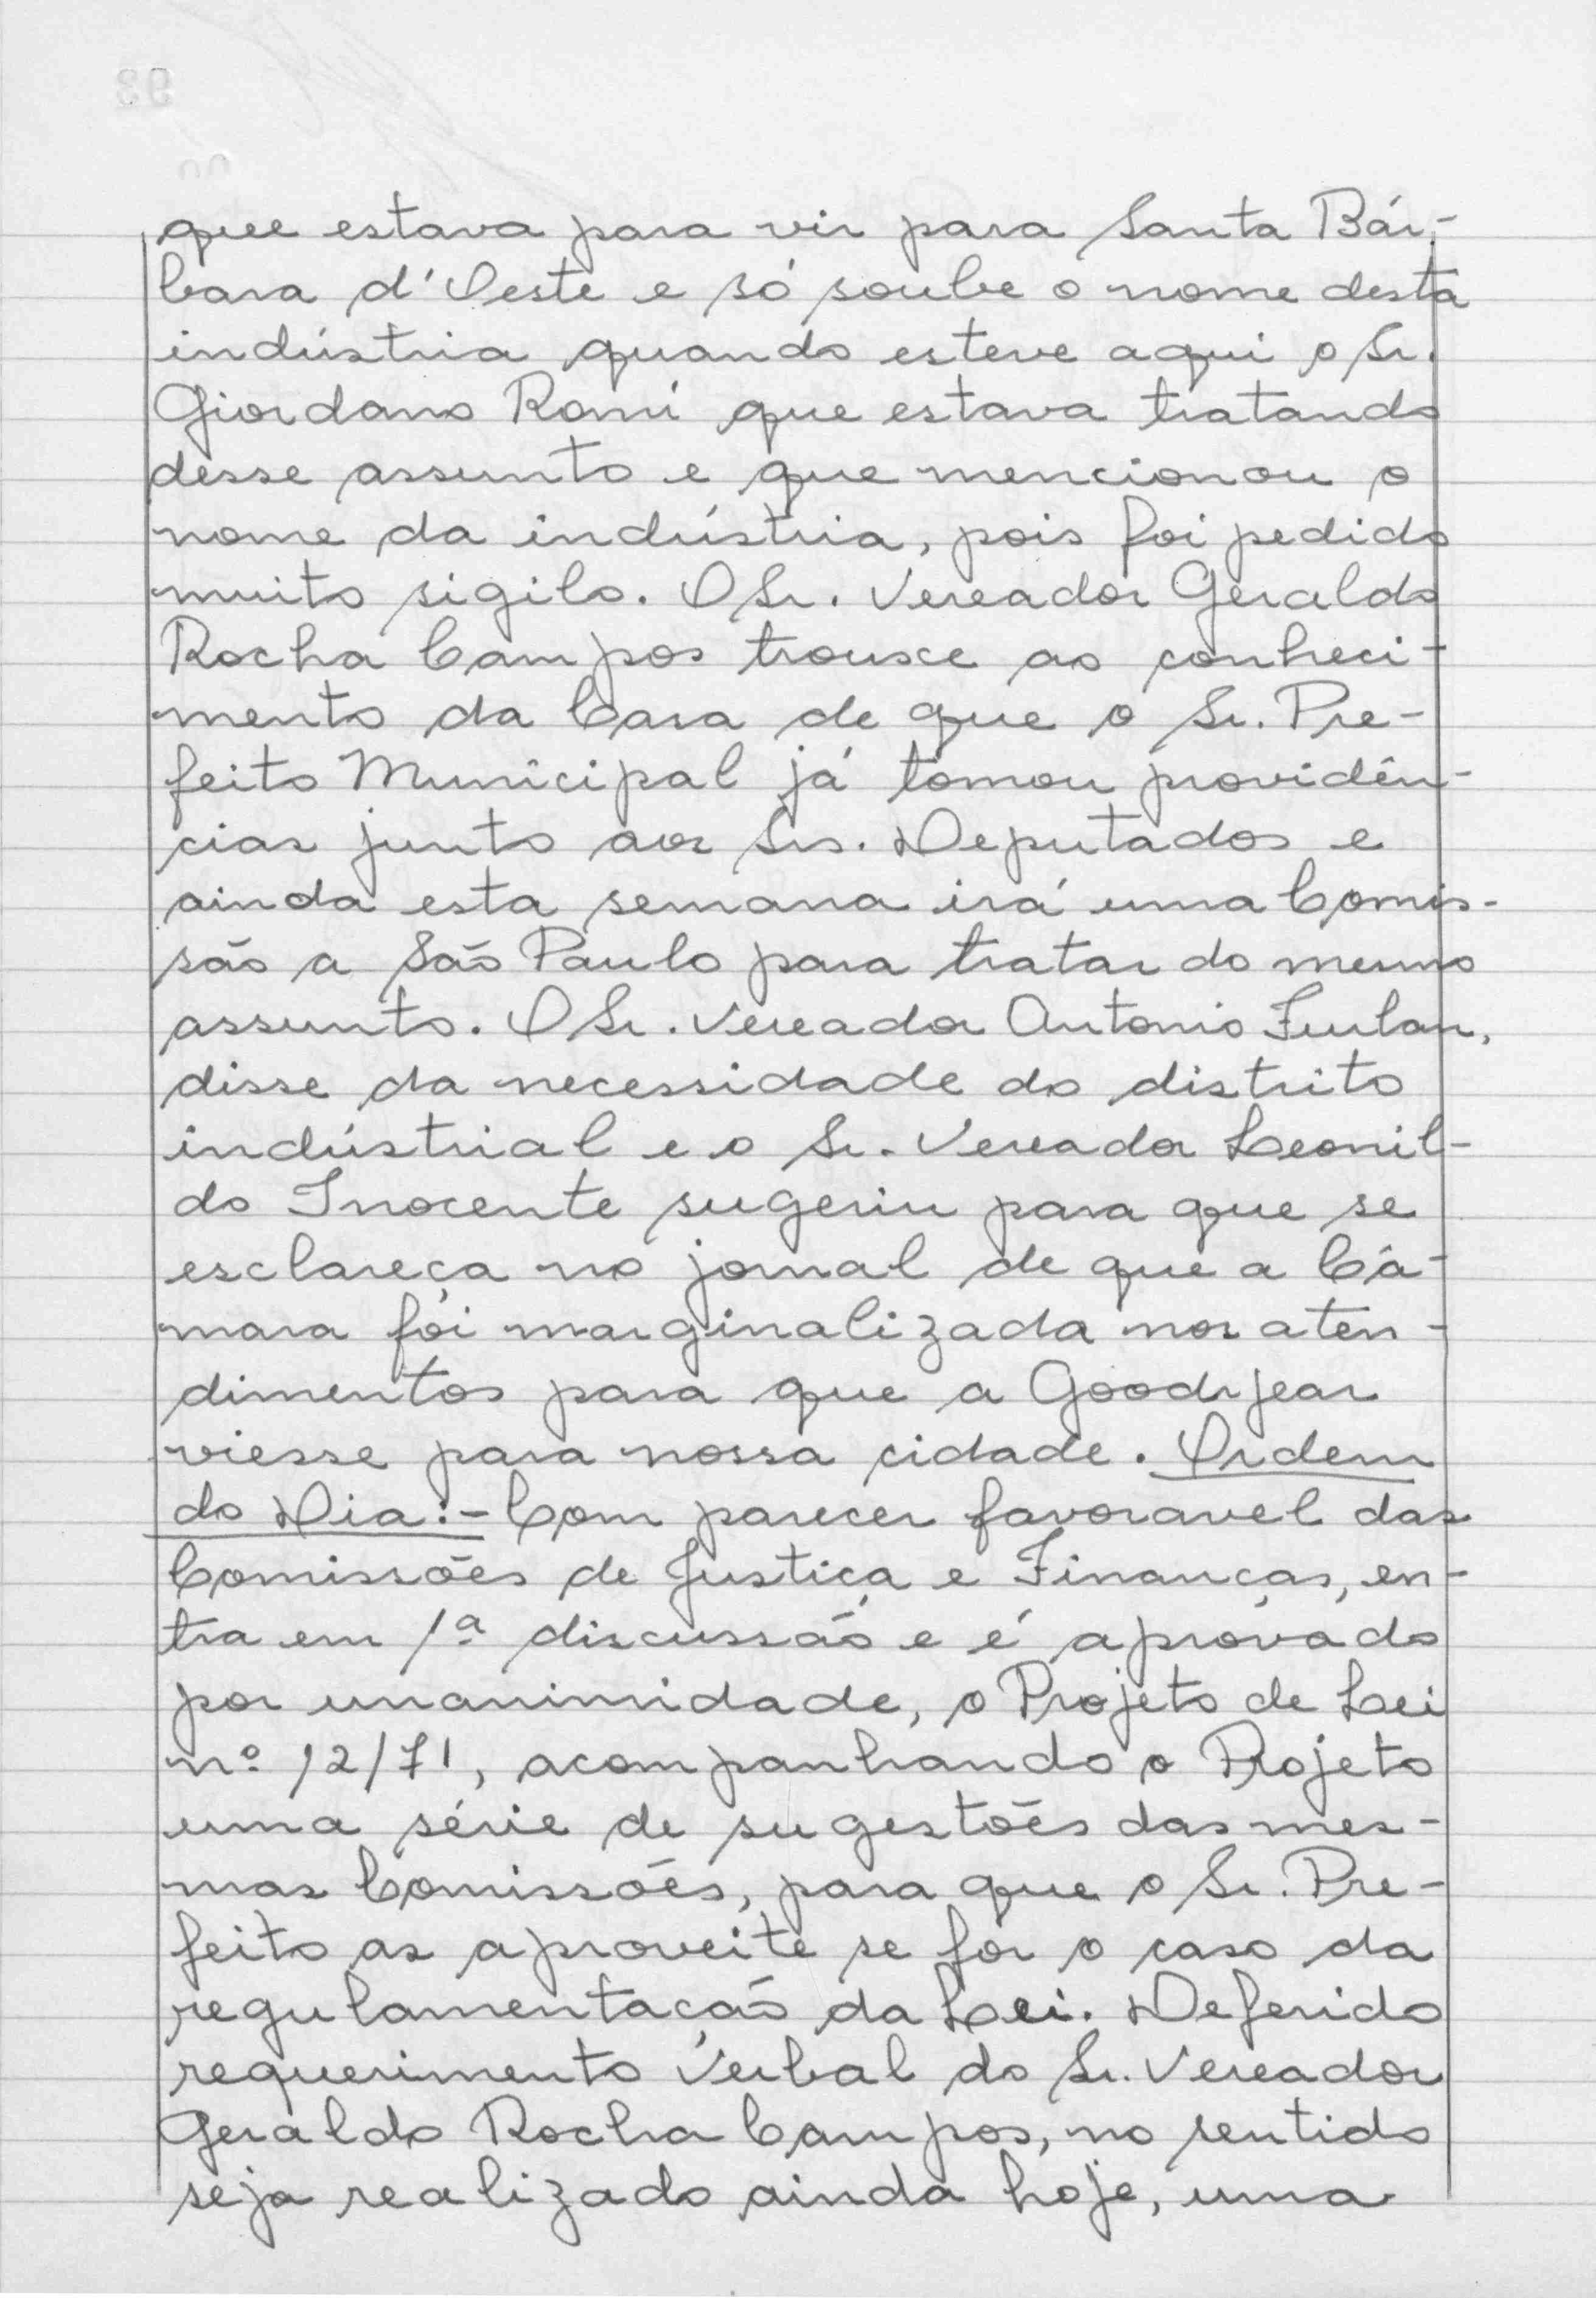 que estava para vir para Santa Bár-
bara d'Oeste e só soube o nome desta
indústria quando esteve aqui o Sr.
Giordano Romi que estava tratando
desse assunto e que mencionou o
nome da indústria, pois foi pedido
muito sigilo. O Sr. Vereador Geraldo
Rocha Campos trouxe ao conheci-
mento da Casa de que o Sr. Pre-
feito Municipal já tomou providên-
cias junto aos Srs. Deputados e
ainda esta semana irá uma Comis-
são a São Paulo para tratar do mesmo
assunto. O Sr. Vereador Antonio Furlan,
disse da necessidade do distrito
indústrial e o Sr. Vereador Leonil-
do Inocente sugeriu para que se
esclareça no jornal de que a Câ-
mara foi marginalizada nos aten-
dimentos para que a Goodyear
viesse para nossa cidade. Ordem
do Dia:- Com parecer favoravel das
Comissões de Justiça e Finanças, en-
tra em 1ª discussão e é aprovado
por unanimidade, o Projeto de Lei
nº 12/71, acompanhando o Projeto
uma série de sugestões das mes-
mas Comissões, para que o Sr. Pre-
feito as aproveite se fôr o caso da
regulamentação da Lei. Deferido
requerimento Verbal do Sr. Vereador
Geraldo Rocha Campos, no sentido
seja realizado ainda hoje, uma